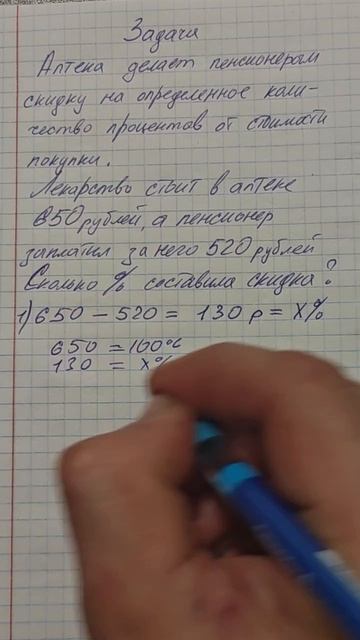 Задача
Аптека делает пенсионерам
скидку на определенное коли-
чество процентов от стоимости
покупки.
Лекарство стоит в аптеке
650 рублей, а пенсионер
заплатил за него 520 рублей
Сколько % составила скидка?
1) 650 - 520 = 130 р = X%
650 = 100%
130 = X%